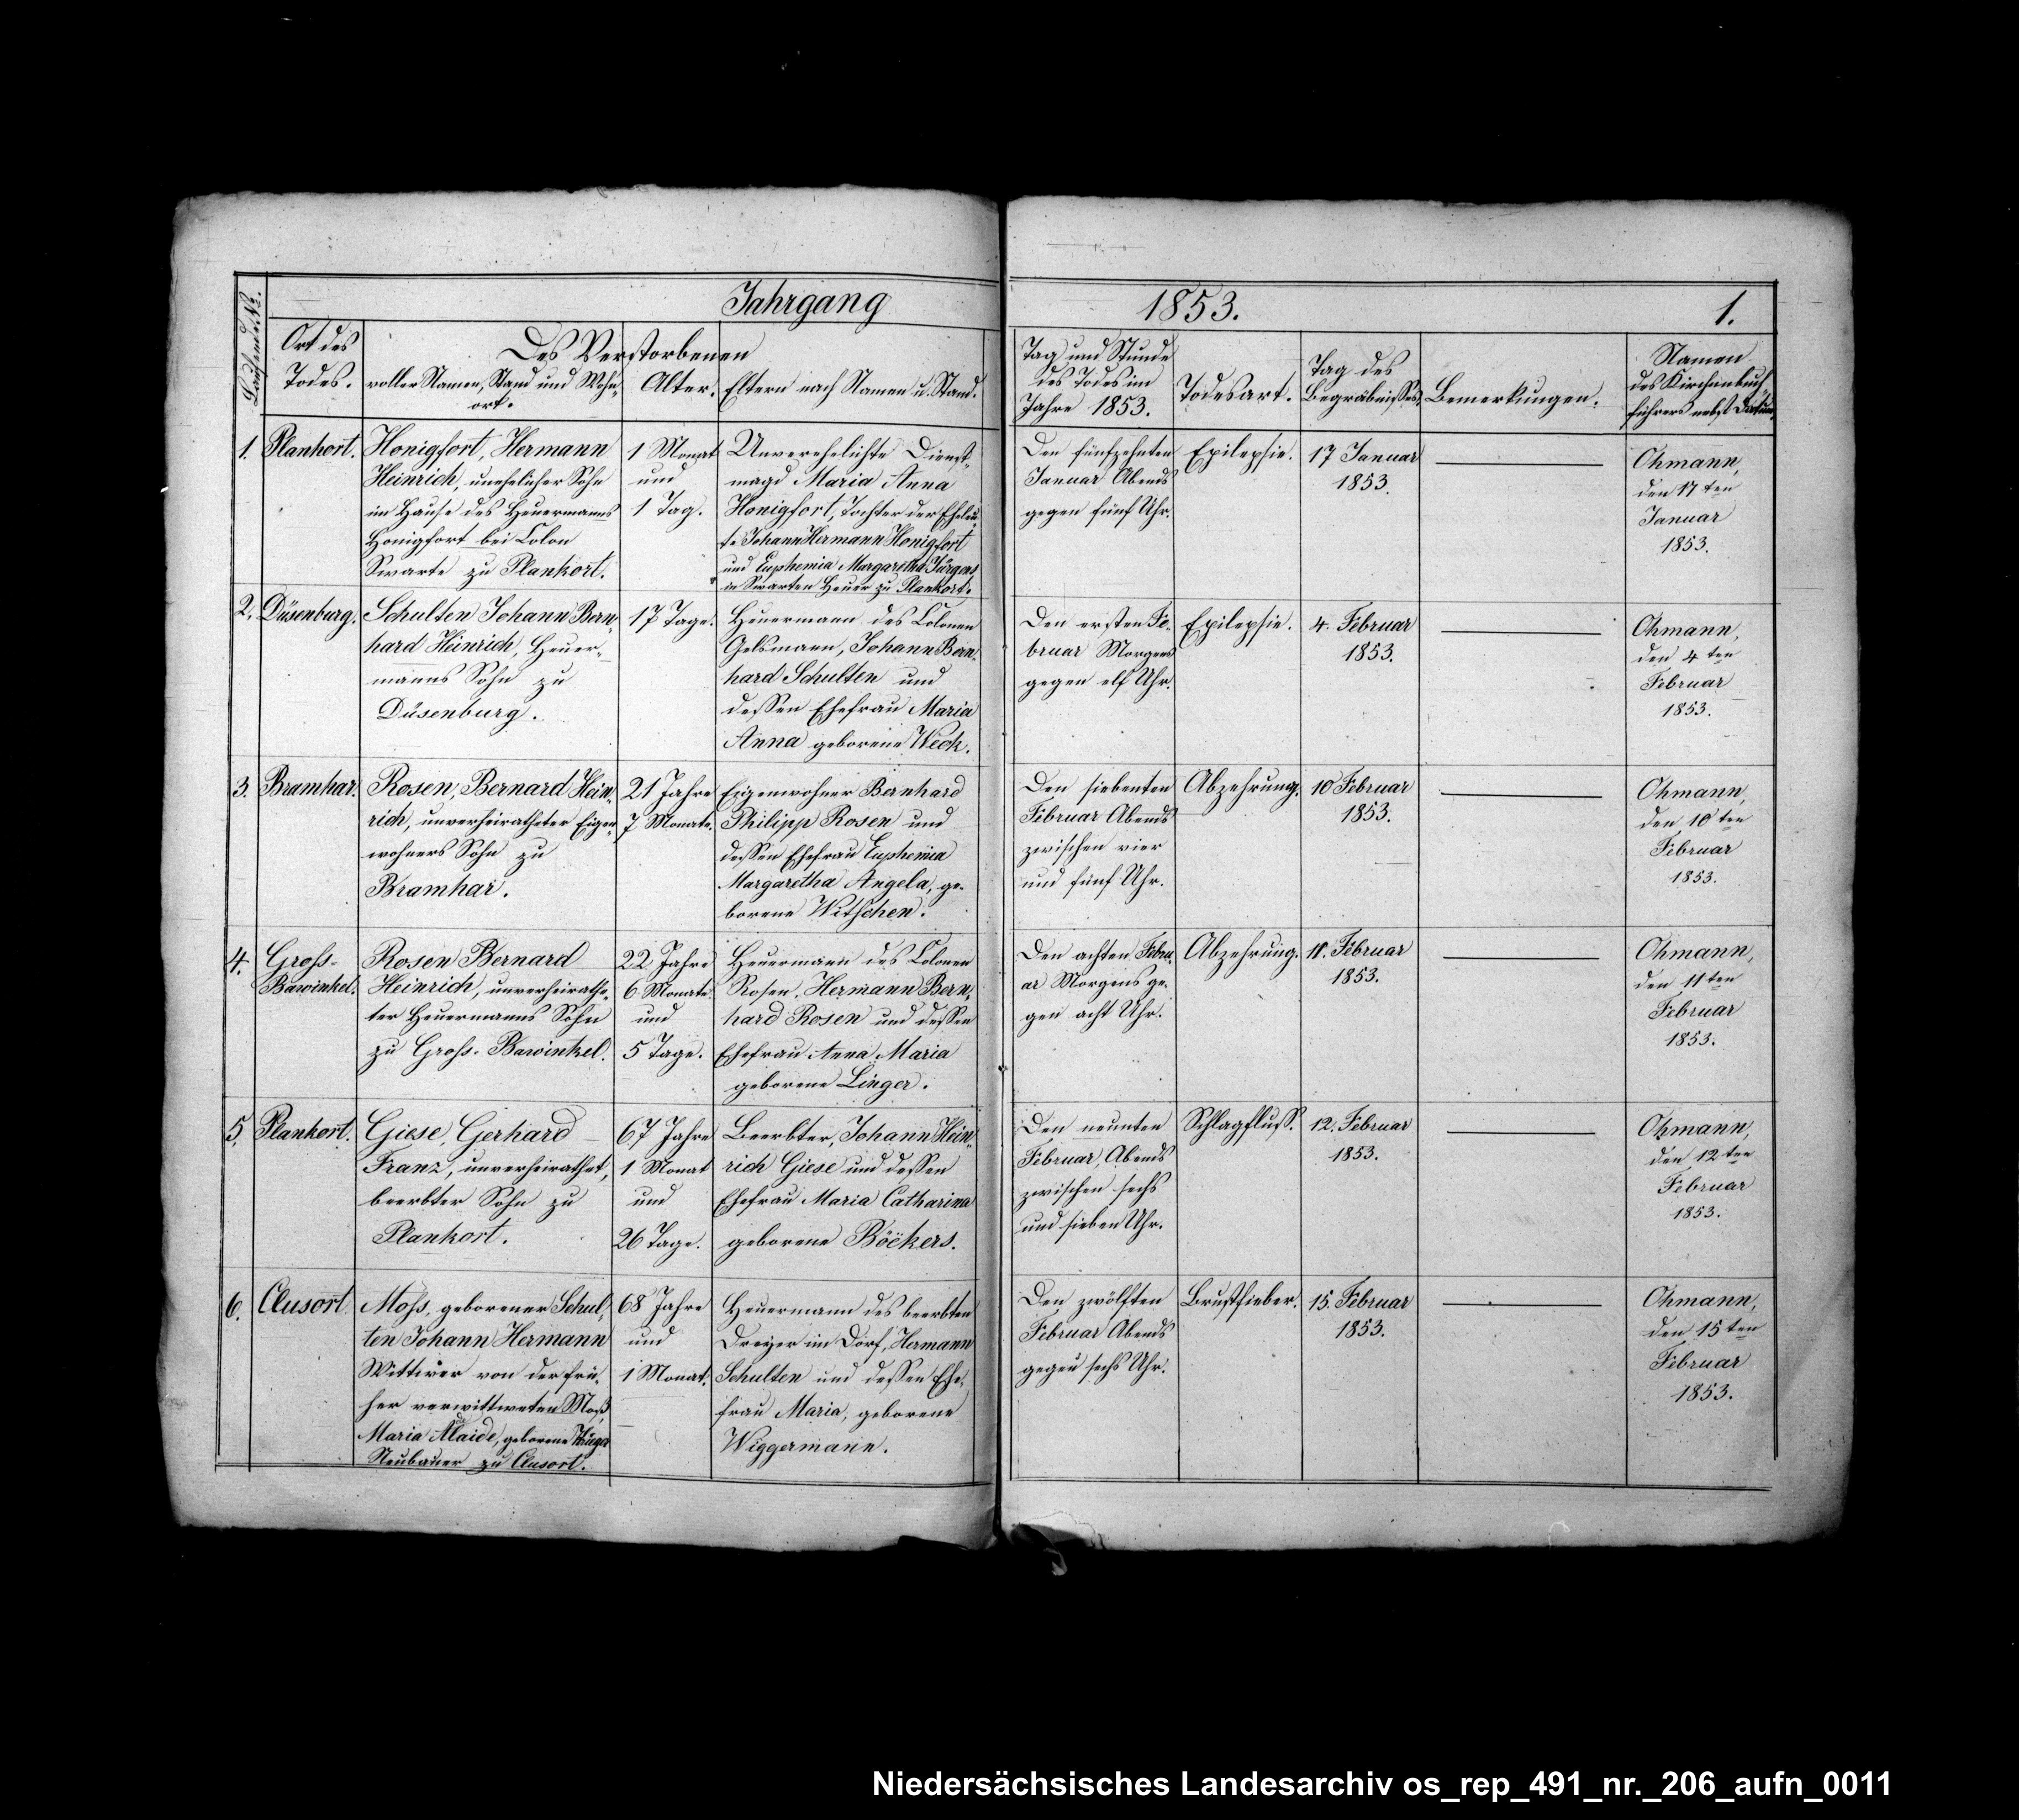 Jahrgang 1853. 1.
Laufende №.
Ort des
Todes.
Des Verstorbenen
voller Namen, Stand und Wohn-
ort.
Alter.
Eltern nach Namen u. Stand.
Tag und Stunde
des Todes im
Jahre 1853.
Todesart.
Tag des
Begräbnisses.
Bemerkungen.
Namen
des Kirchenbuch-
führers nebst Datum.
1.
Plankort.
Honigfort, Hermann
Heinrich, unehelicher Sohn
im Hause des Heuermanns
Honigfort bei Colon
Swarte zu Plankort.
1 Monat
und
1 Tag.
Unverehelichte Dienst-
magd Maria Anna
Honigfort, Tochter der Eheleu-
te Johann Hermann Honigfort
und Euphemia Margaretha Jürgens
in Swarten Heuer zu Plankort.
Den fünfzehnten
Januar Abends
gegen fünf Uhr.
Epilepsie.
17 Januar
1853.
Ohmann,
den 17ten
Januar
1853.
2.
Düsenburg.
Schulten Johann Bern-
hard Heinrich, Heuer-
manns Sohn zu
Düsenburg.
17 Tage.
Heuermann des Colonen
Gelsmann, Johann Bern-
hard Schulten und
dessen Ehefrau Maria
Anna geborene Weck.
Den ersten Fe-
bruar Morgens
gegen elf Uhr.
Epilepsie.
4. Februar
1853.
Ohmann,
den 4ten
Februar
1853.
3.
Bramhar.
Rosen, Bernard Hein-
rich, unverheiratheter Eigen-
wohners Sohn zu
Bramhar.
21 Jahre
7 Monate.
Eigenwohner Bernhard
Philipp Rosen und
dessen Ehefrau Euphemia
Margaretha Angela, ge-
borene Witschen.
Den siebenten
Februar Abends
zwischen vier
und fünf Uhr.
Abzehrung.
10 Februar
1853.
Ohmann,
den 10ten
Februar
1853.
4.
Gross-
Bawinkel.
Rosen Bernard
Heinrich, unverheirathe-
ter Heuermanns Sohn
zu Gross-Bawinkel.
22 Jahre
6 Monate
und
5 Tage.
Heuermann des Colonen
Rosen, Hermann Bern-
hard Rosen und dessen
Ehefrau Anna Maria
geborene Linger.
Den achten Febru-
ar Morgens ge-
gen acht Uhr.
Abzehrung.
11. Februar
1853.
Ohmann,
den 11ten
Februar
1853.
5.
Plankort.
Giese, Gerhard
Franz, unverheirathet,
beerbter Sohn zu
Plankort.
67 Jahre
1 Monat
und
26 Tage.
Beerbter, Johann Hein-
rich Giese und dessen
Ehefrau Maria Catharina
geborene Böckers.
Den neunten
Februar, Abends
zwischen sechs
und sieben Uhr.
Schlagfluss.
12. Februar
1853.
Ohmann,
den 12ten
Februar
1853.
6.
Clusort.
Moss, geborener Schul-
ten Johann Hermann
Wittwer von der frü-
her verwittweten Moß,
Maria Alaide, geborene
Neubauer zu Clusort.
68 Jahre
und
1 Monat.
Heuermann des beerbten
Dreyer im Dorf, Hermann
Schulten und dessen Ehe-
frau Maria, geborene
Wiggermann.
Den zwölften
Februar Abends
gegen sechs Uhr.
Brustfieber.
15. Februar
1853.
Ohmann,
den 15ten
Februar
1853.
Niedersächsisches Landesarchiv os_rep_491_nr._206_aufn_0011